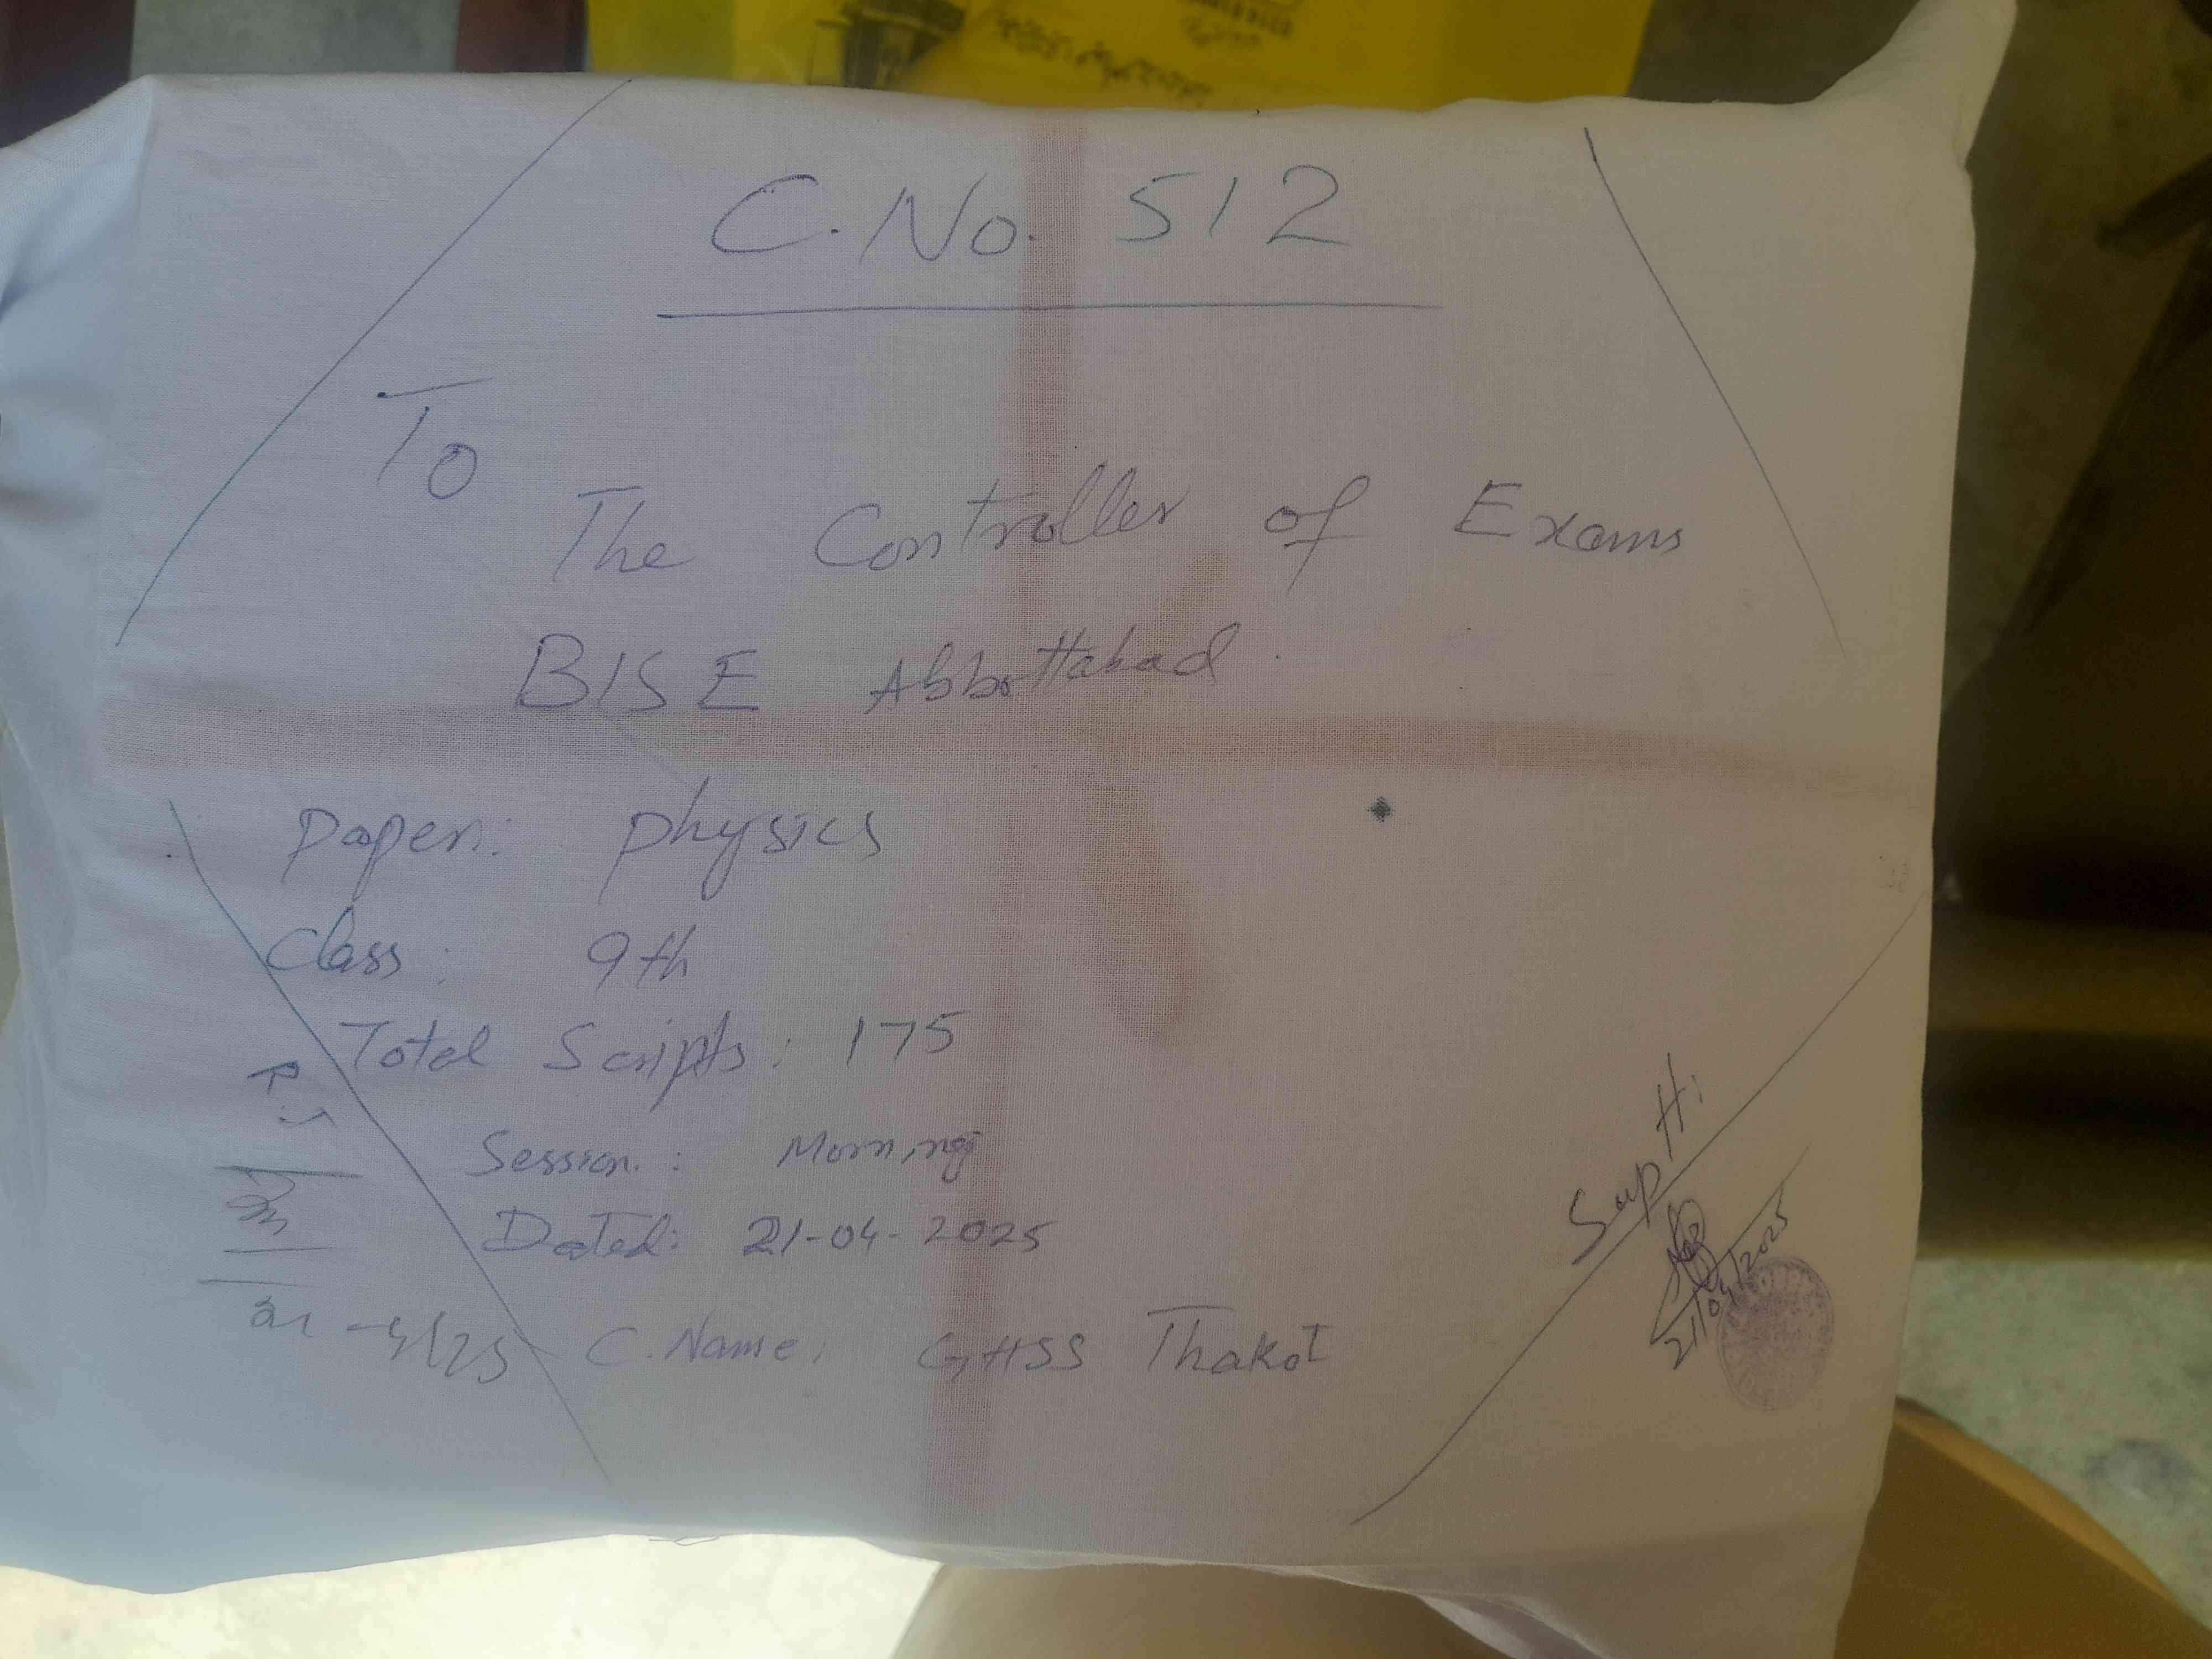 C.No. 512
To
The Controller of Exams
BISE Abbottabad.
Paper: Physics
Class: 9th
Total Scripts: 175
Session: Morning
Dated: 21-04-2025
C.Name: GHSS Thakot
R.I
21-4/25
Supdtt:
21/04/2025